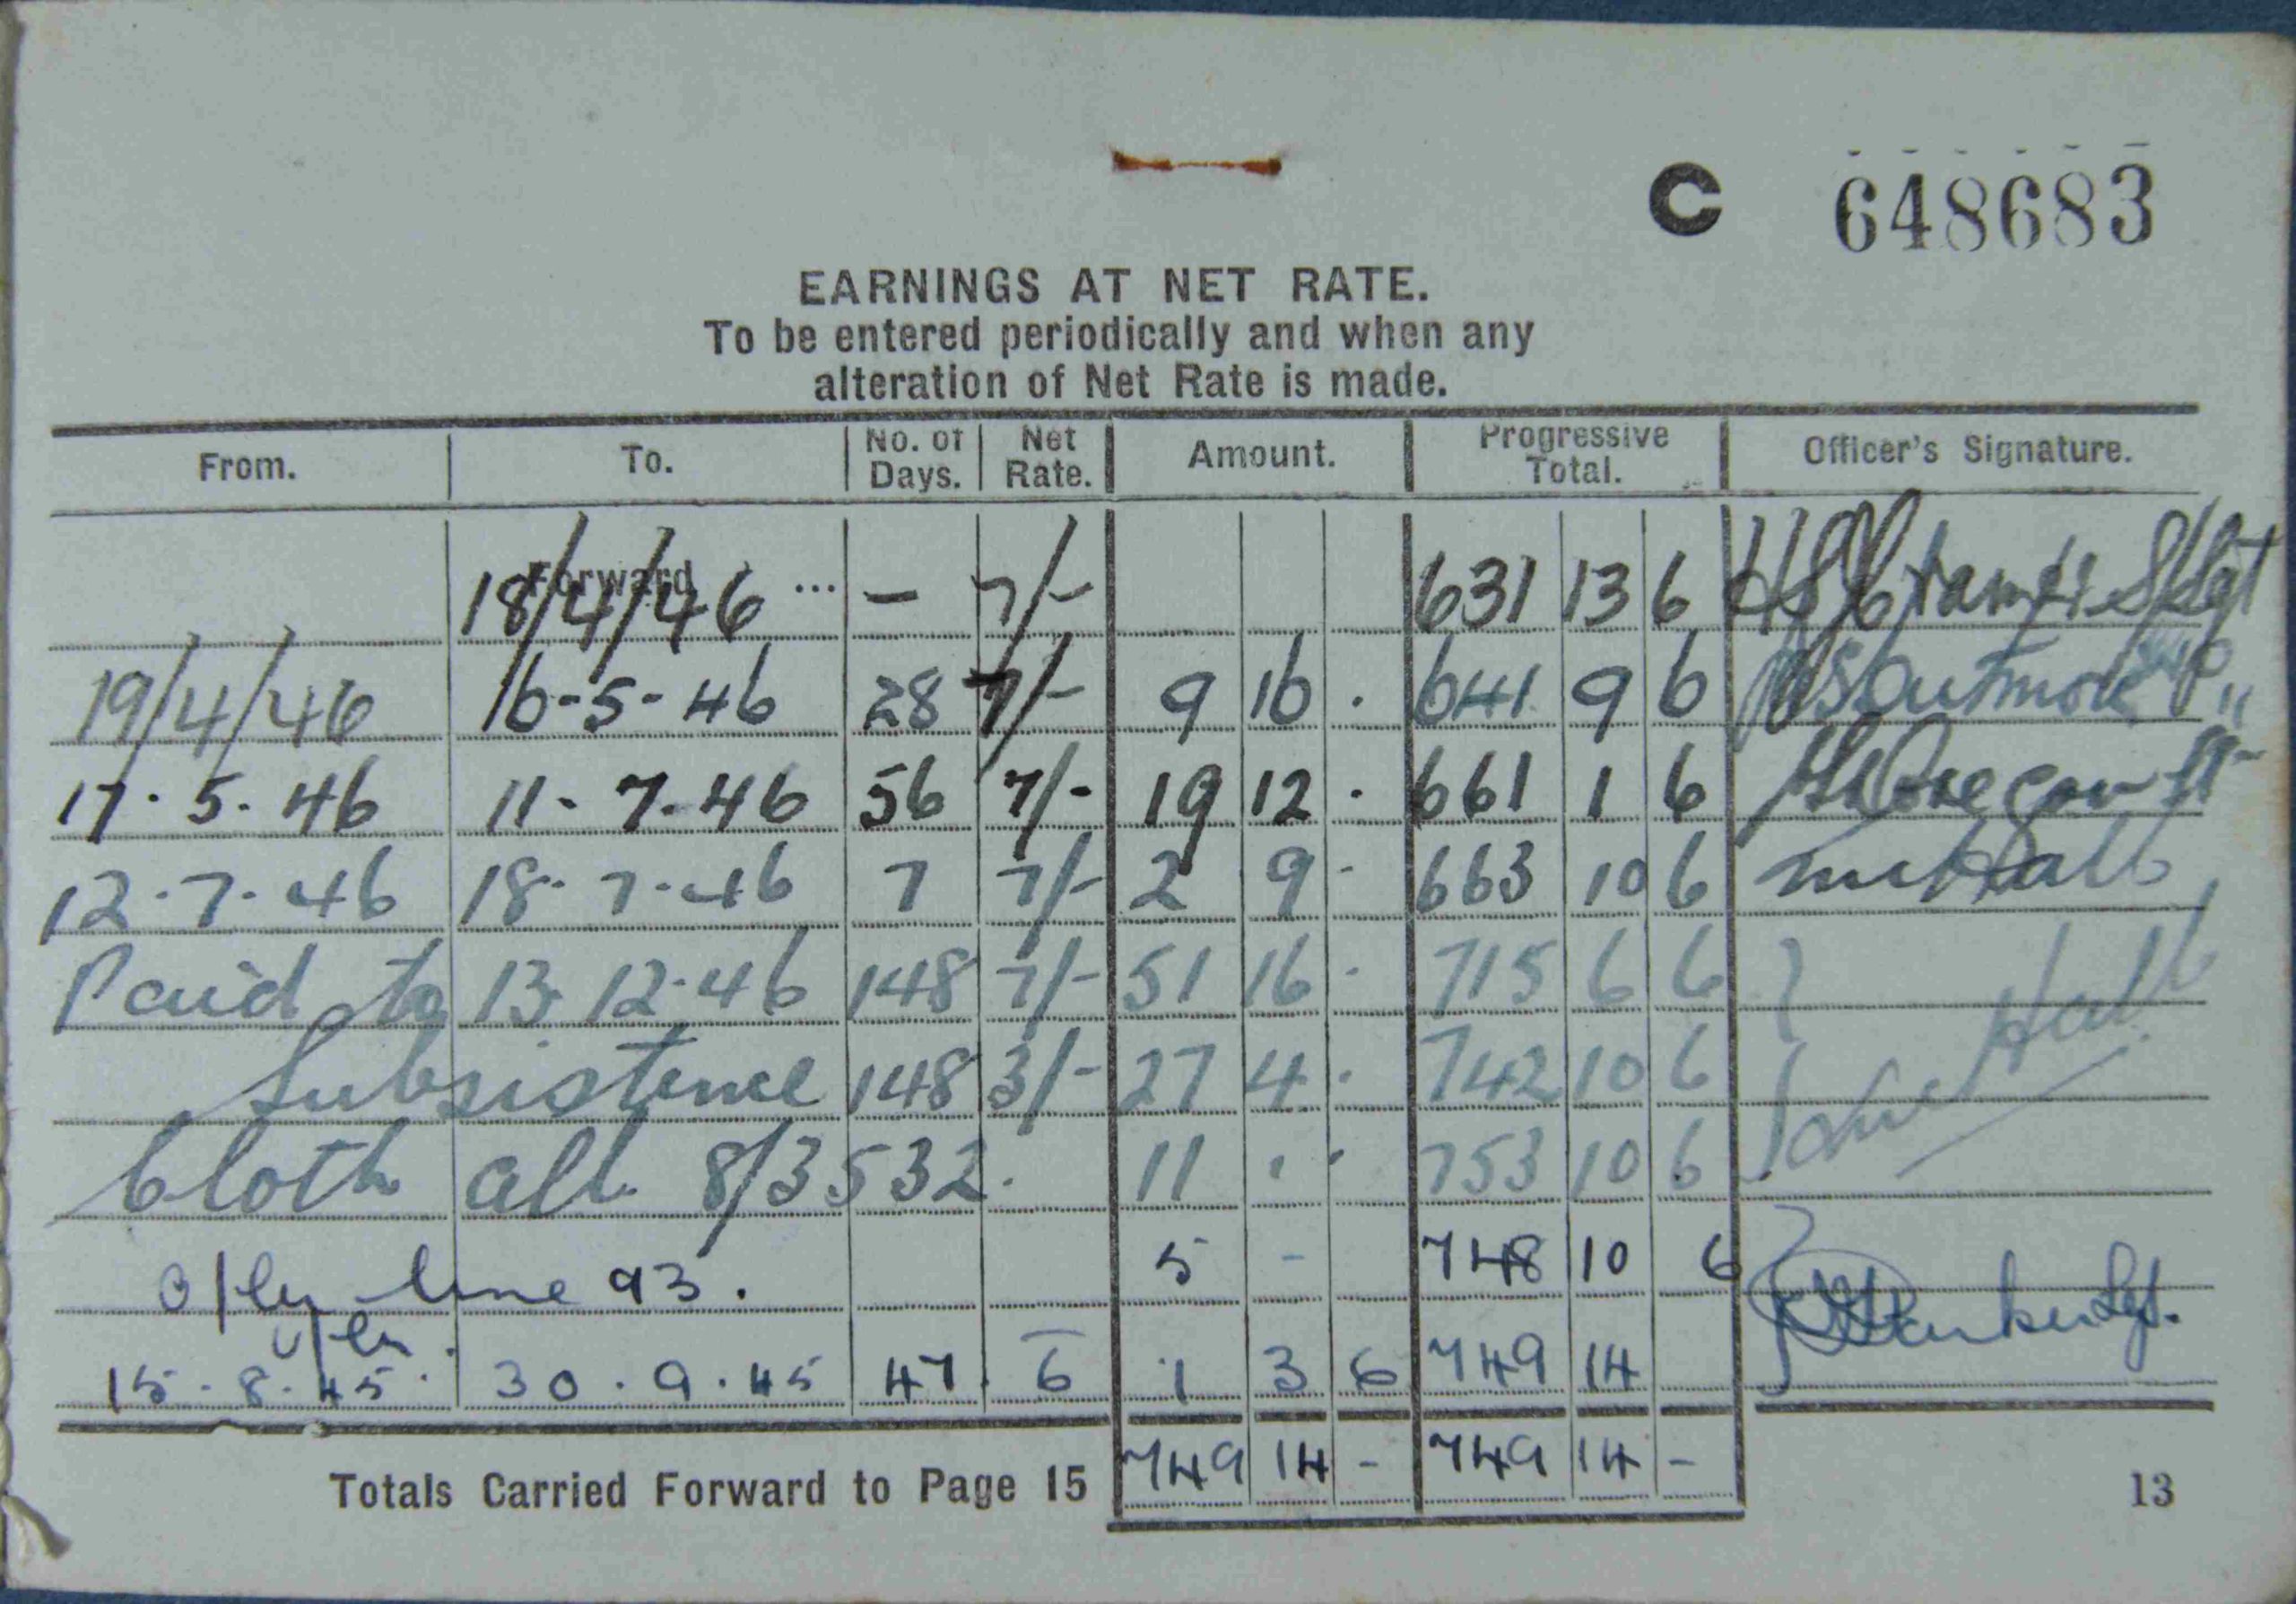 C 648683
EARNINGS AT NET RATE.
To be entered periodically and when any
alteration of Net Rate is made.
From. To. No. of Days. Net Rate. Amount. Progressive Total. Officer's Signature.
Forward ... 18/4/46 – 7/- 631 13 6 S/Sgt
19/4/46 16-5-46 28 7/- 9 16 . 641 9 6
17.5.46 11-7-46 56 7/- 19 12 . 661 1 6
12.7.46 18.7.46 7 7/- 2 9 - 663 10 6
Paid to 13.12.46 148 7/- 51 16 . 715 6 6
Subsistence 148 3/- 27 4 . 742 10 6
Cloth all 8/3532. 11 . . 753 10 6
line 93. 5 - 748 10 6
15.8.45. 30.9.45 47 6 1 3 6 749 14
Totals Carried Forward to Page 15 749 14 - 749 14 -
13